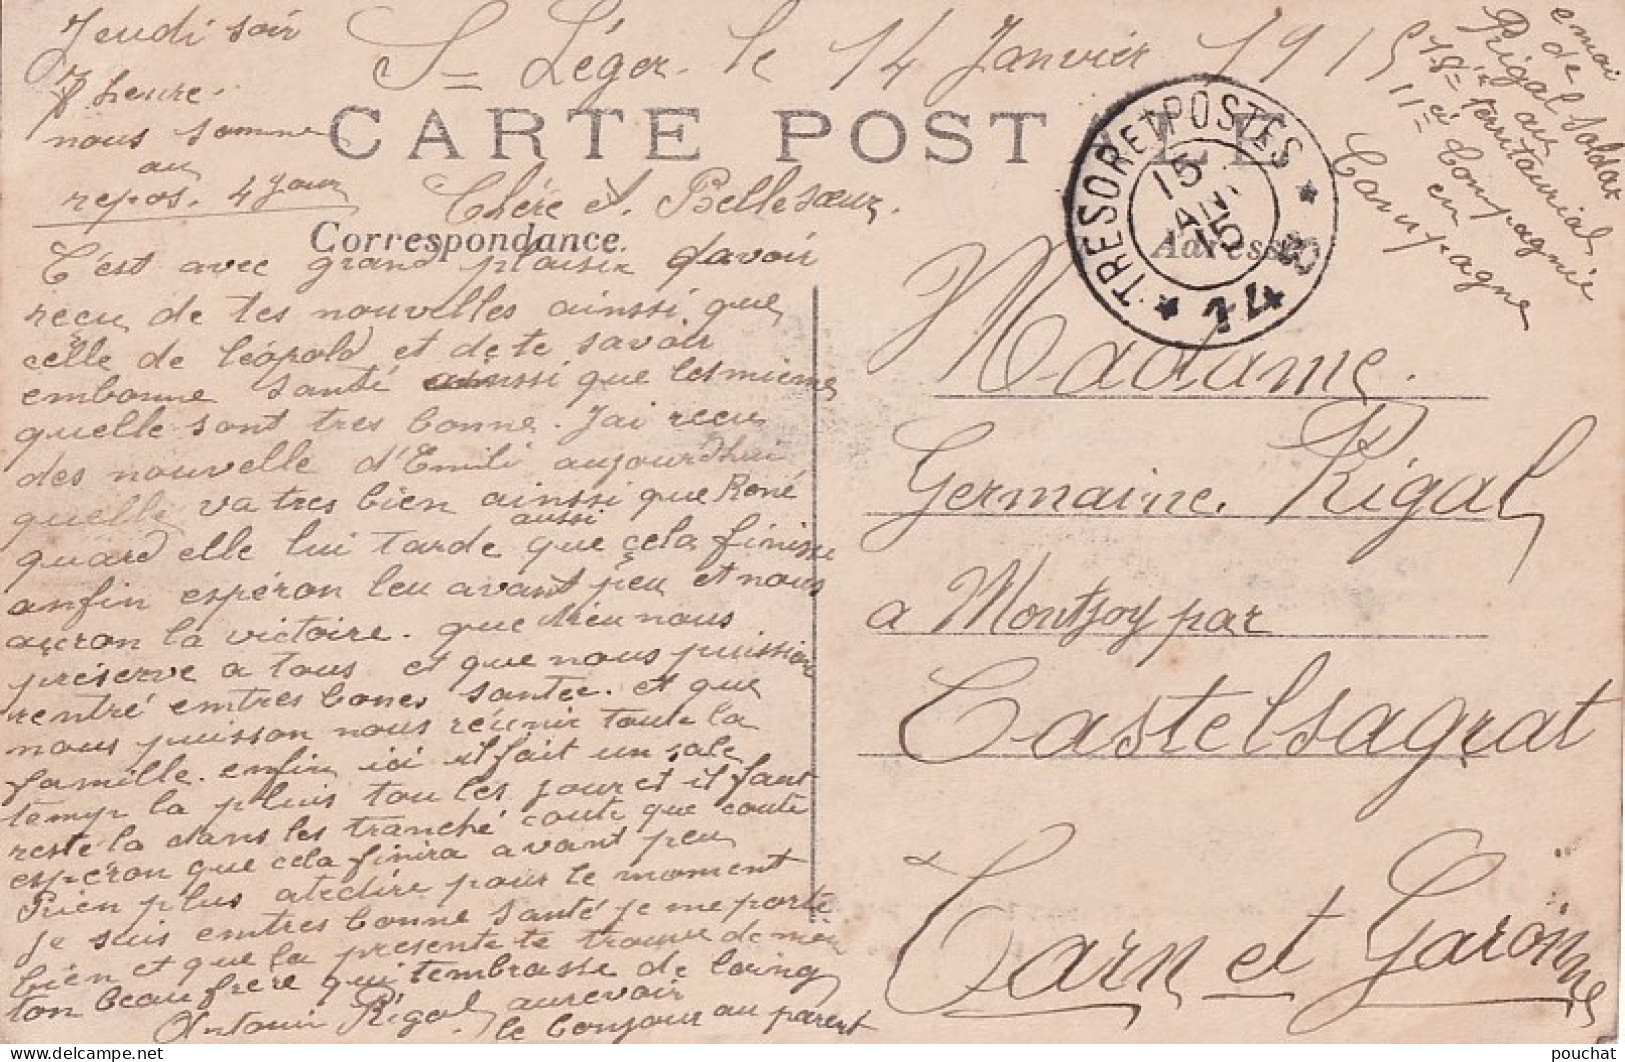 Jeudi soir
7 heure.
nous somme
au
repos. 4 jour
St Léger. le 14 Janvier 1915
CARTE POSTALE
Chére et Belle sœur.
Correspondance.
C'est avec grand plaisir davoir
reçu de tes nouvelles ainssi que
celle de Léopold et de te savoir
embonne santé ainssi que les mienne
quelle sont tres bonne. J'ai reçu
des nouvelle d'Emili aujourdhui
quelle va tres bien ainssi que René
aussi
quard elle lui tarde que çela finisse
enfin espéron leu avant peu et nous
auron la victoire. que Dieu nous
préserve a tous et que nous puission
rentré emtres bones santée. et que
nous puisson nous reunir toute la
famille. enfin ici il fait un sale
temp la pluis tou les jour et il faut
resté la dans les tranché coute que coute
espéron que cela finira avant peu
Rien plus atedire pour le moment
Je suis emtres bonne santé je me porte
bien et que la presente te trouve de meme
ton beaufrere qui tembrasse de loin
Antonin Rigal aurevoir
le bonjour au parent
TRESOR ET POSTES
15
JANV
15
* 44 *
Adresse
emoi
de soldat
Rigal au
18e territaurial
11e Compagnie
en
Campagne
Madame.
Germaine. Rigal
a Montjoy par
Castelsagrat
Tarn et Garonne
pouchat